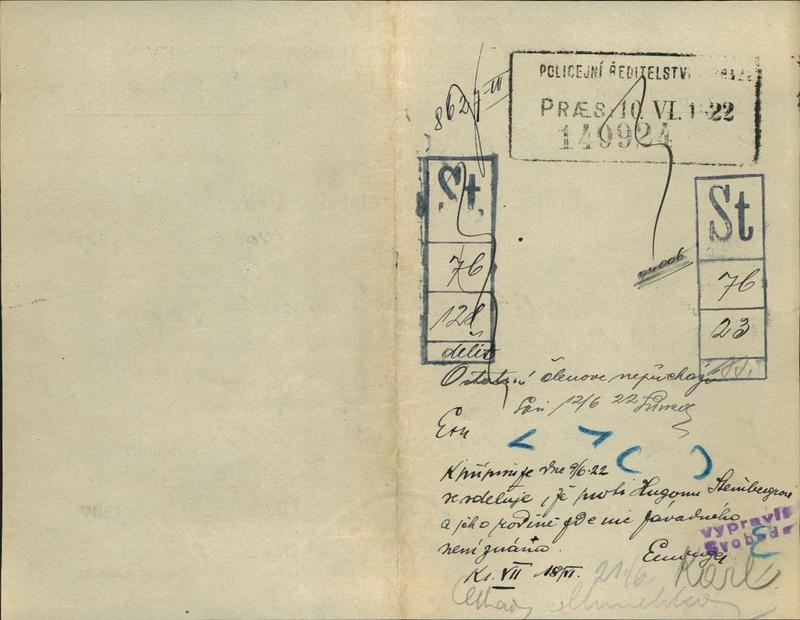 8627 III
POLICEJNÍ ŘEDITELSTVÍ
PRÆS. 10. VI. 1922
149924
St.
76
128
St
76
23
Ostatní členové nepřichází
12/6 22
K přípisu ze dne 9/6. 22
se sděluje, že proti Hugonu Steinbergrovi
a jeho rodině zde nic závadného
není známo.
vypravil
Svoboda
Kr. VII 18/VI.
21/6
Karl